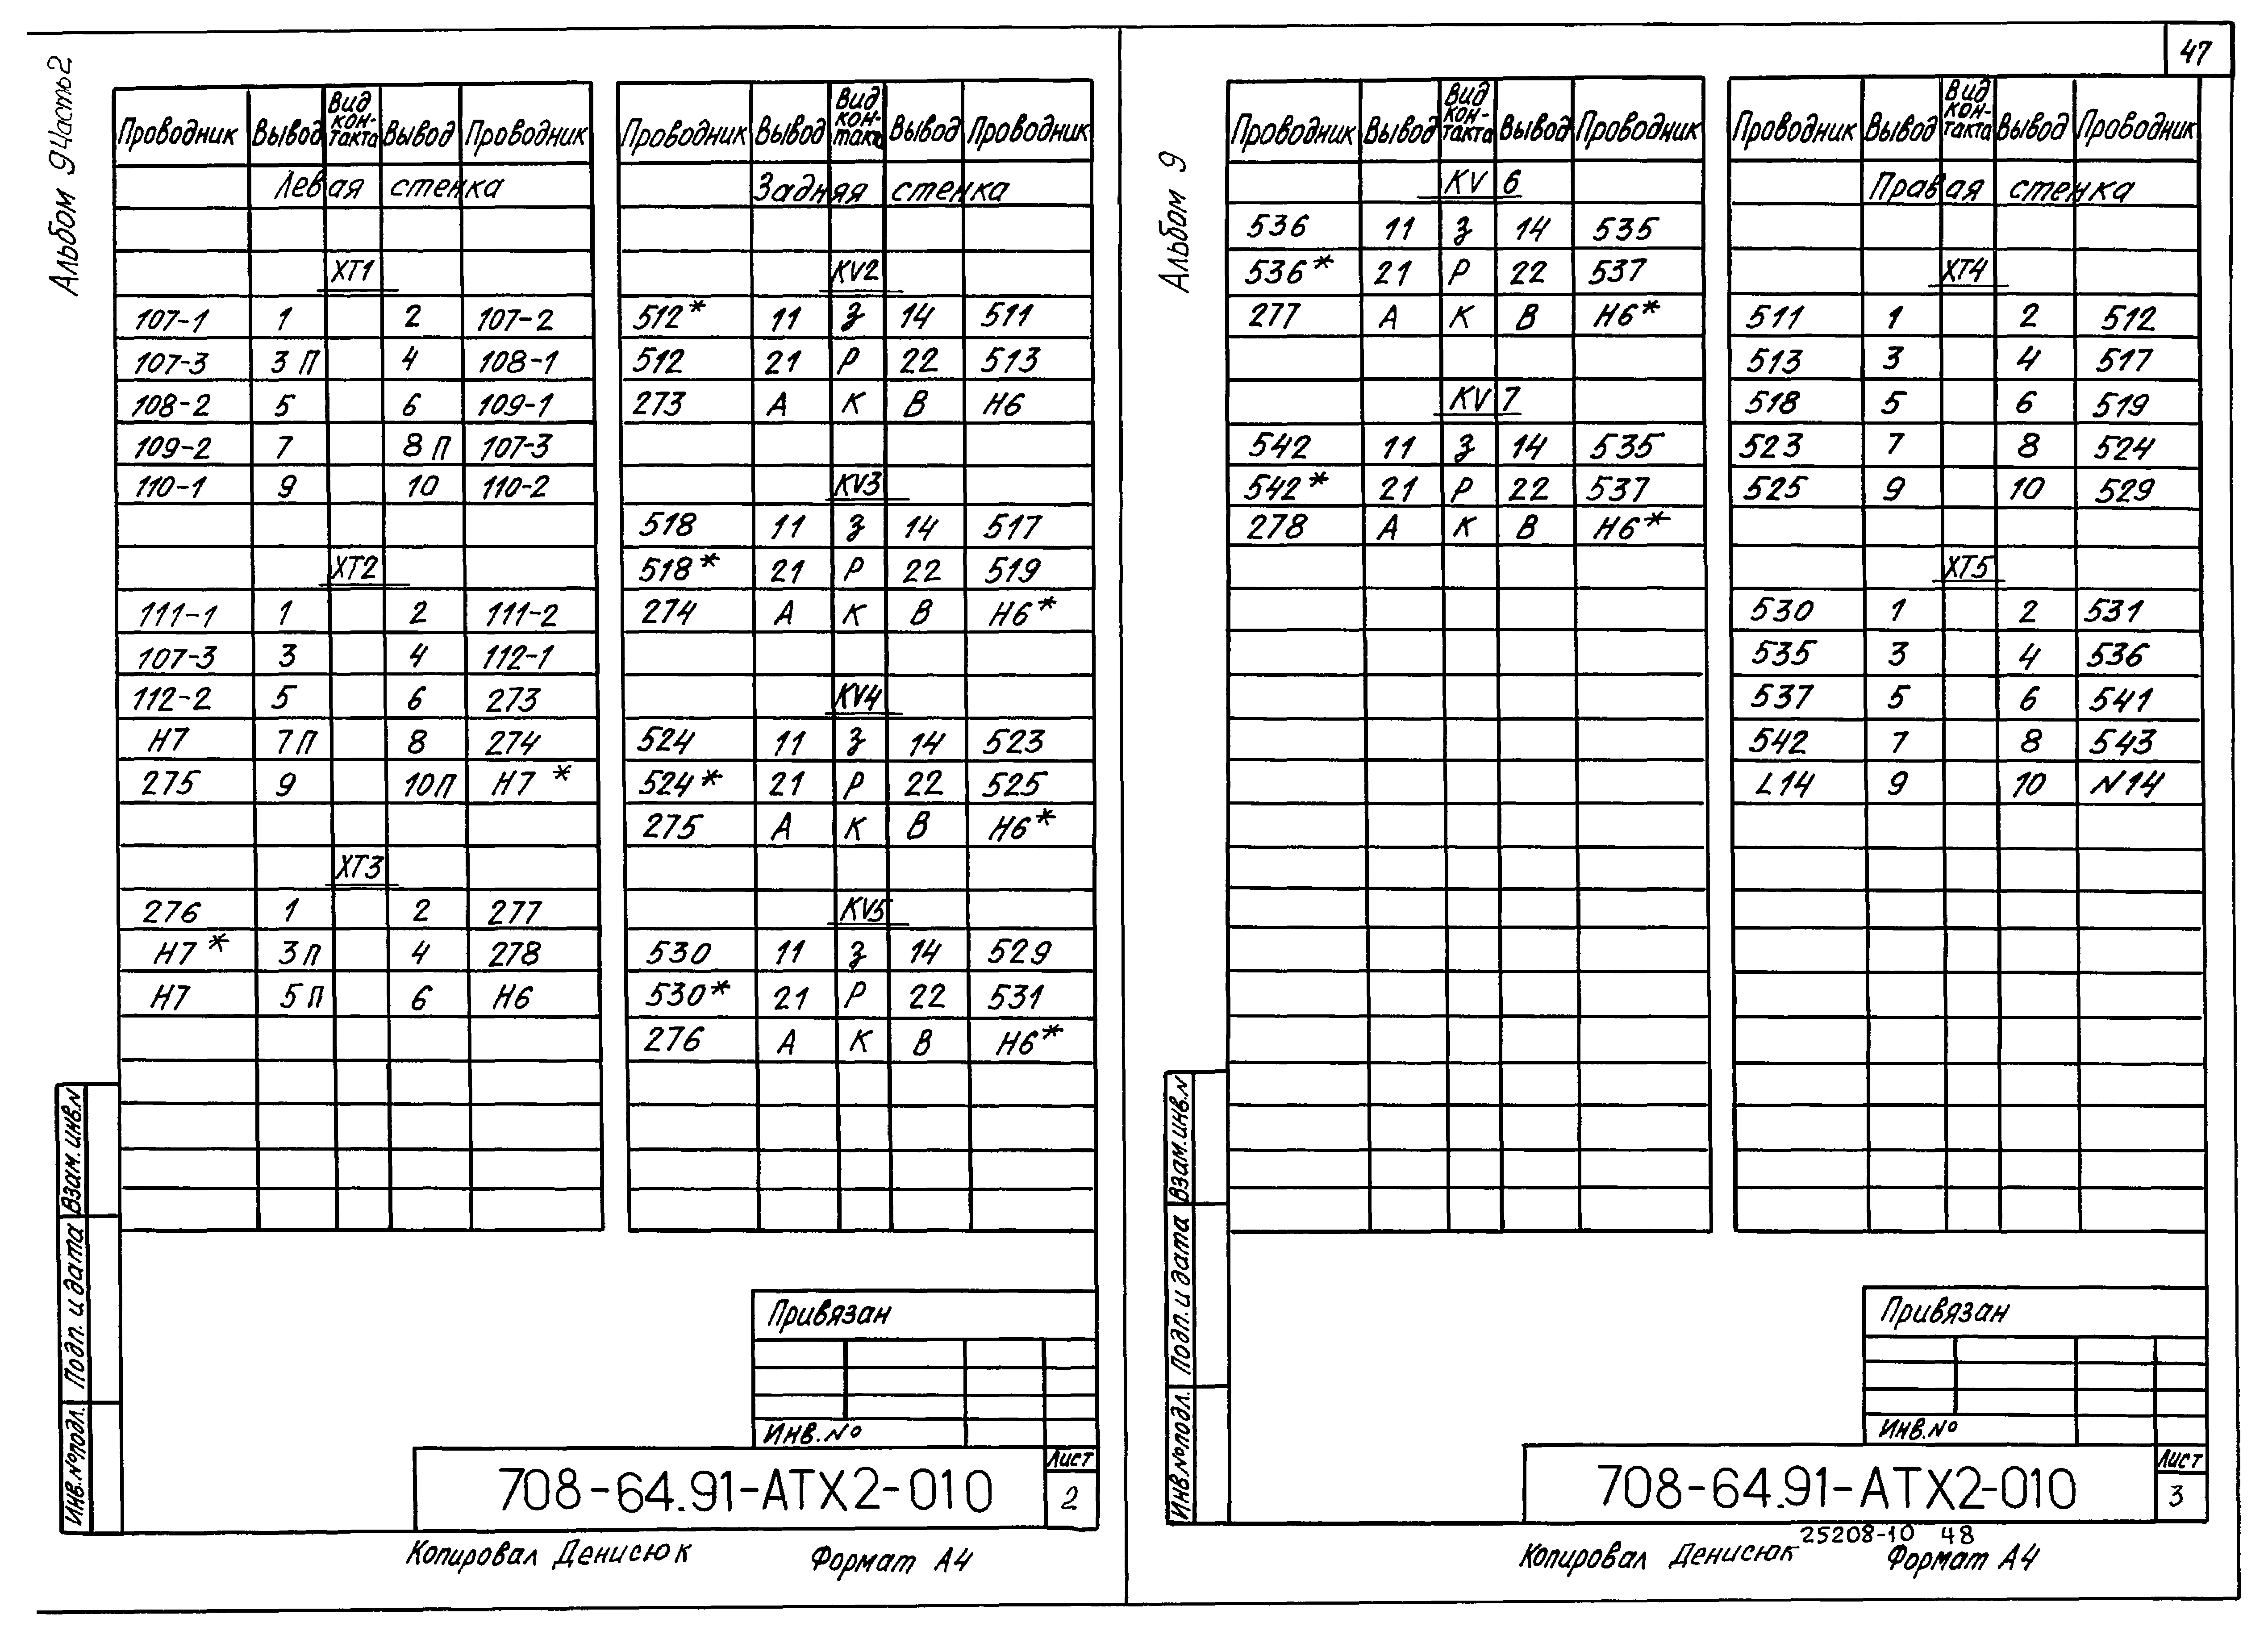 47
Альбом 9 Часть 2
Проводник Вывод Вид кон-такта Вывод Проводник
Левая стенка
XT1
107-1 1 2 107-2
107-3 3 П 4 108-1
108-2 5 6 109-1
109-2 7 8 П 107-3
110-1 9 10 110-2
XT2
111-1 1 2 111-2
107-3 3 4 112-1
112-2 5 6 273
Н7 7 П 8 274
275 9 10 П Н7 *
XT3
276 1 2 277
Н7 * 3 П 4 278
Н7 5 П 6 Н6
Проводник Вывод Вид кон-такта Вывод Проводник
Задняя стенка
KV2
512* 11 З 14 511
512 21 Р 22 513
273 А К В Н6
KV3
518 11 З 14 517
518* 21 Р 22 519
274 А К В Н6*
KV4
524 11 З 14 523
524* 21 Р 22 525
275 А К В Н6*
KV5
530 11 З 14 529
530* 21 Р 22 531
276 А К В Н6*
Взам. инв. N
Подп. и дата
Инв. № подл.
Привязан
Инв. №
708-64.91-АТХ2-010
Лист
2
Копировал Денисюк Формат А4
Альбом 9
Проводник Вывод Вид кон-такта Вывод Проводник
KV 6
536 11 З 14 535
536* 21 Р 22 537
277 А К В Н6*
KV 7
542 11 З 14 535
542* 21 Р 22 537
278 А К В Н6*
Проводник Вывод Вид кон-такта Вывод Проводник
Правая стенка
XT4
511 1 2 512
513 3 4 517
518 5 6 519
523 7 8 524
525 9 10 529
XT5
530 1 2 531
535 3 4 536
537 5 6 541
542 7 8 543
L14 9 10 N14
Взам. инв. N
Подп. и дата
Инв. № подл.
Привязан
Инв. №
708-64.91-АТХ2-010
Лист
3
25208-10 48
Копировал Денисюк Формат А4